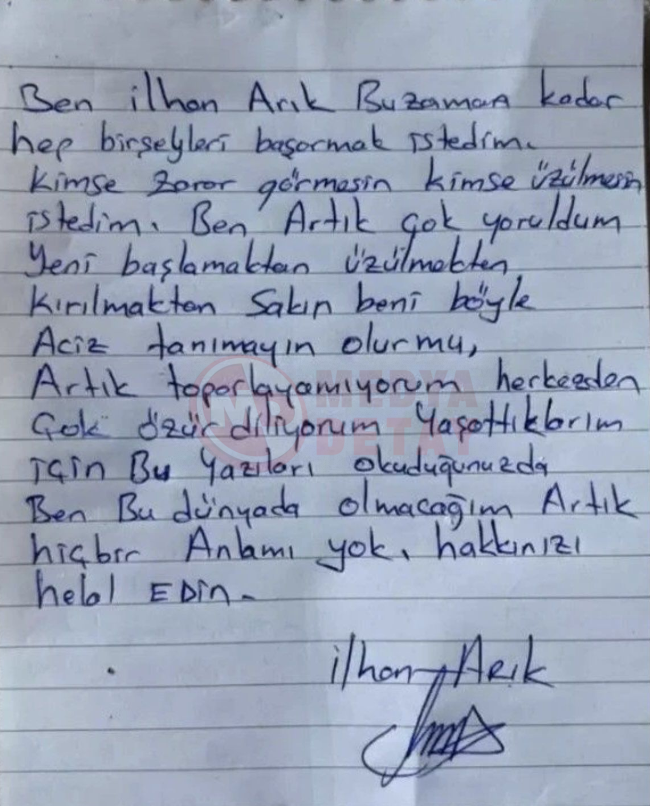 Ben ilhan Arık Buzamana kadar
hep birşeyleri başarmak istedim.
Kimse zarar görmesin kimse üzülmesin
istedim. Ben Artık çok yoruldum
Yeni başlamaktan üzülmekten,
Kırılmaktan Sakın beni böyle
Aciz tanımayın olurmu,
Artık toparlayamıyorum herkezden
Çok özür diliyorum Yaşattıklarım
için Bu Yazıları okuduğunuzda
Ben Bu dünyada olmacağım Artık
hiçbir Anlamı yok, hakkınızı
helal EDin.
ilhan Arık
MEDYA
DETAY